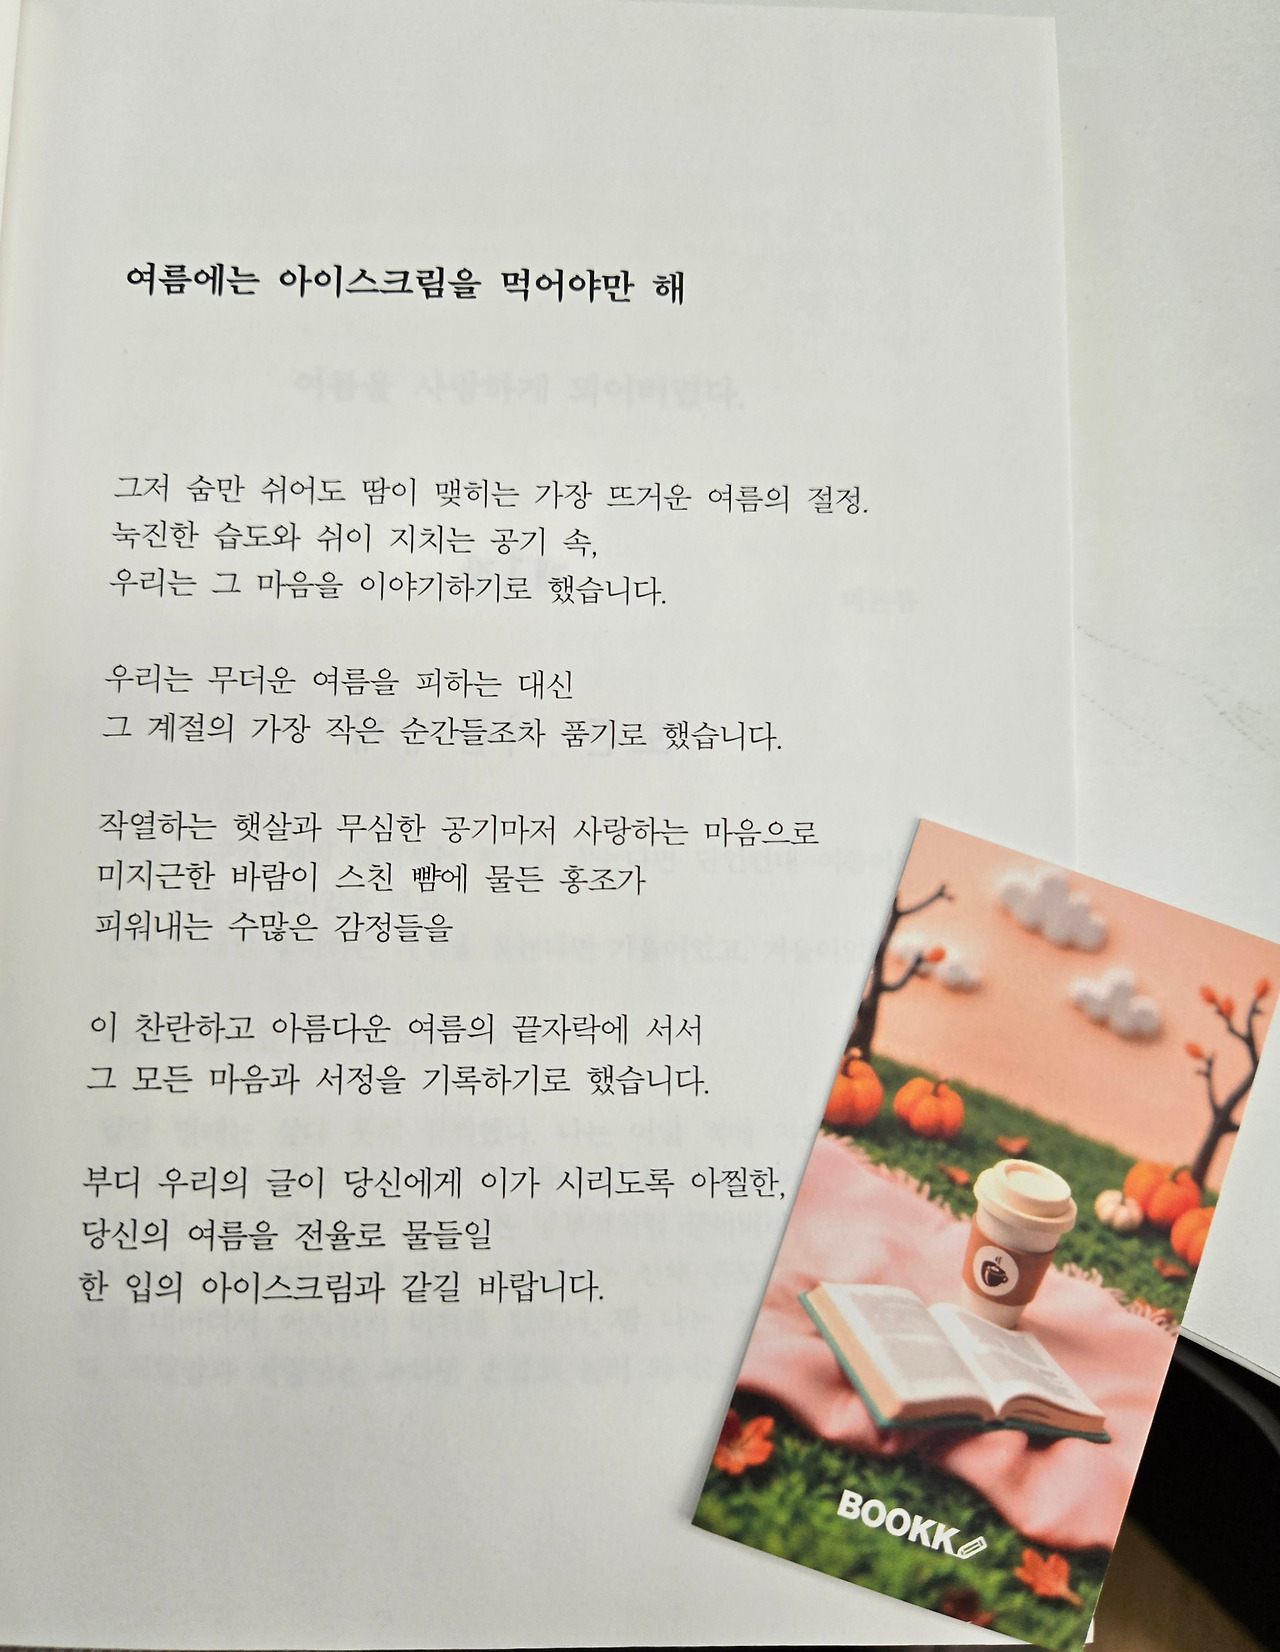 여름에는 아이스크림을 먹어야만 해
그저 숨만 쉬어도 땀이 맺히는 가장 뜨거운 여름의 절정.
눅진한 습도와 쉬이 지치는 공기 속,
우리는 그 마음을 이야기하기로 했습니다.
우리는 무더운 여름을 피하는 대신
그 계절의 가장 작은 순간들조차 품기로 했습니다.
작열하는 햇살과 무심한 공기마저 사랑하는 마음으로
미지근한 바람이 스친 뺨에 물든 홍조가
피워내는 수많은 감정들을
이 찬란하고 아름다운 여름의 끝자락에 서서
그 모든 마음과 서정을 기록하기로 했습니다.
부디 우리의 글이 당신에게 이가 시리도록 아찔한,
당신의 여름을 전율로 물들일
한 입의 아이스크림과 같길 바랍니다.
BOOKK